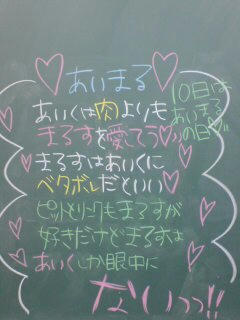 ♡あいまる♡
10日は
あいまる
の日♡
あいくは肉よりも
まるすを愛してう♡
まるすはあいくに
ベタボレだといい♡
ピットとリンクもまるすが
好きだけどまるすは
あいくしか眼中に
ないっっ!!